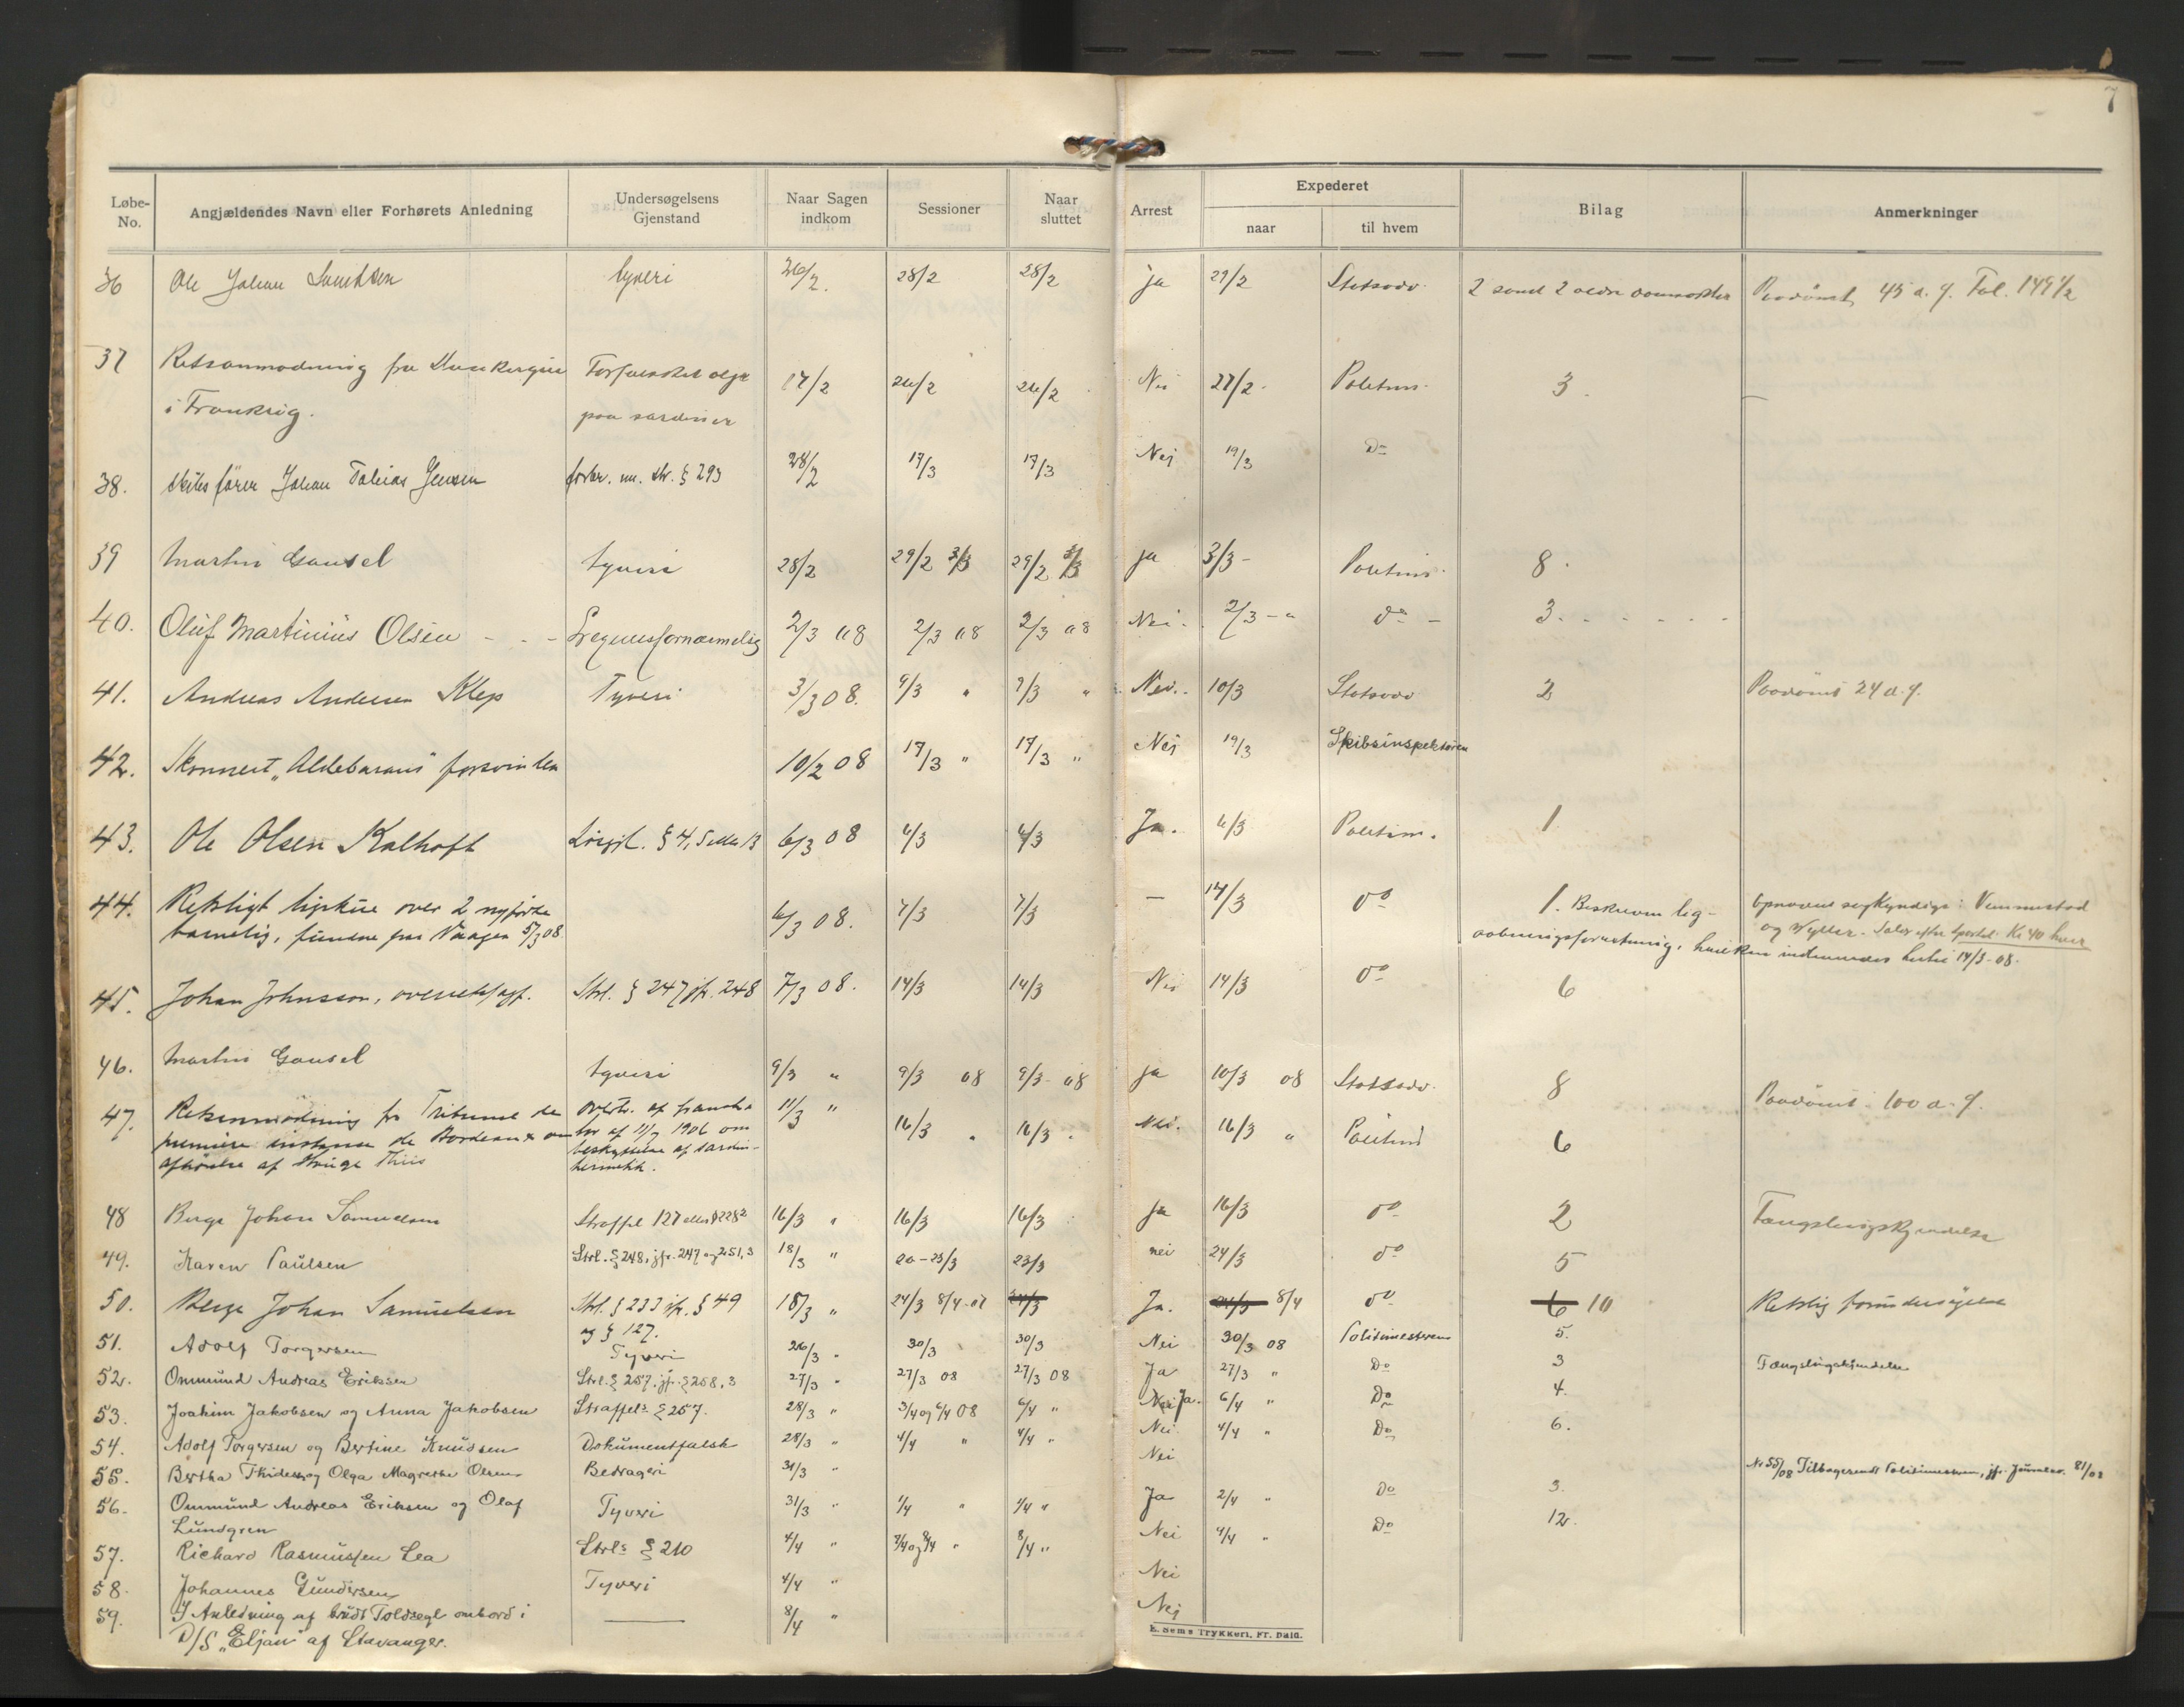 7
Løbe-No. Angjældendes Navn eller Forhørets Anledning Undersøgelsens Gjenstand Naar Sagen indkom Sessioner Naar sluttet Arrest Expederet naar til hvem Bilag Anmerkninger
36 Ole Johan tyveri 26/2. 28/2 28/2 ja 29/2 Statsadv. 2 samt 2 ældre Paadømt 45 a. f. Fol. 149 1/2
37 Retsanmodning fra Dunkerque Forfalsket olje 17/2 26/2 26/2 Nei 27/2. Politim. 3.
i Frankrig. paa sardiner
38. Skibsfører Johan Tobias Jensen forbr. mod str. § 293 28/2 17/3 17/3 Nej 19/3 Do
39 Martin Gausel tyveri 28/2 29/2 3/3 29/2 3/3 ja 3/3 - Politim. 8.
40. Oluf Martinius Olsen - - - Legemsfornærmelse 2/3 08 2/3 08 2/3 08 Nei. 2/3 - " do - 3. - - - - -
41. Andreas Andersen Klep Tyveri 3/3 08. 9/3 " 9/3 " Nei. 10/3 Statsadv 2 Paadømt 24 a. f.
42. Skonnert "Aldebarans" forsvinden 10/2 08 17/3 " 17/3 " Nej 19/3 Skibsinspektøren
43. Ole Olsen Kalhoft Løsgjl. § 4, 5 eller 13 6/3 08 6/3 6/3 Ja. 6/3 Politim. 1
44. Retsligt ligskue over 2 nyfødte 6/3 08. 7/3 7/3 — 14/3 do 1. Beskreven lig- Opnævnt sagkyndige: Vemmestad
barnelig, fundne paa Vaagen 5/3 08 aabningsforretning, hvilken indsendes hertil 14/3-08. og Wyller. Kr 40 hver
45. Johan Johnsson, Strl. § 247 jfr. 248 7/3 08. 14/3 14/3 Nei 14/3 do 6
46. Martin Gausel tyveri 9/3 " 9/3 08 9/3 - 08 ja 10/3 08 Statsadv. 8 Paadømt. 100 a. f.
47. Retsanmodning fra Tribunal de overtr. af franske 11/3 " 16/3 " 16/3 . Nei. 16/3 " Politim 6
premiere instance de Bordeaux om lov af 11/7 1906 om
afhørelse af Thiis beskyttelse af sardin-
hermetik.
48 Berge Johan Samuelsen Straffel 127 eller § 228² 16/3 " 16/3 16/3 ja 16/3 do 2 Fængslingskjendelse
49. Karen Paulsen Strl. § 248, jfr. 247 og 251,3 18/3 " 20-23/3 23/3 nei 24/3 do 5
50. Berge Johan Samuelsen Strl. § 233 jfr. § 49 18/3 " 24/3 8/4-08 24/3 Ja. 24/3 8/4 do 6 10 Retslig forundersøgelse
og § 127.
51. Adolf Torgersen Tyveri 26/3 " 30/3 30/3 Nei 30/3 08 Politimesteren 5.
52. Ommund Andreas Eriksen Strl. § 257, jfr. § 258, 3 27/3 " 27/3 08 27/3 08 Ja 27/3 " Do 3 Fængslingskjendelse
53. Joakim Jakobsen og Anna Jakobsen Straffels § 257. 28/3 " 3/4 og 6/4 08 6/4 " Nei Ja. 6/4 " Do 4.
54. Adolf Torgersen og Bertine Knudsen Dokumentfalsk 28/3 " 4/4 " 4/4 " Nei. 4/4 " Do 6.
55. Bertha og Olga Magrethe Olsen Bedrageri 31/3 " Nei No 55/08 Tilbagesendt Politimesteren, jfr. Journalno. 81/08
56. Ommund Andreas Eriksen og Olaf Tyveri 31/3 " 1/4 " 1/4 " Ja 2/4 " Do 3.
Lundgren
57. Richard Rasmussen Lea Strls § 210 4/4 " 7/4 og 8/4 " 8/4 " Nei 4/4 " Do 12.
58. Johannes Gundersen Tyveri 4/4 " Nei
59. I Anledning af brudt Toldsegl ombord i —— 8/4 " Nej
D/S "Eljan" af Stavanger.
E. Sems Trykkeri, Fr. hald.